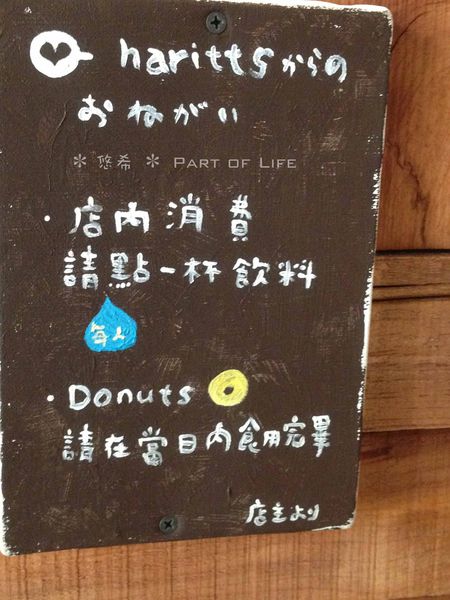 harittsからの
おねがい
＊ 悠希 ＊ PART OF LIFE
・店內消費
請點一杯飲料
每人
・Donuts
請在當日內食用完畢
店主より